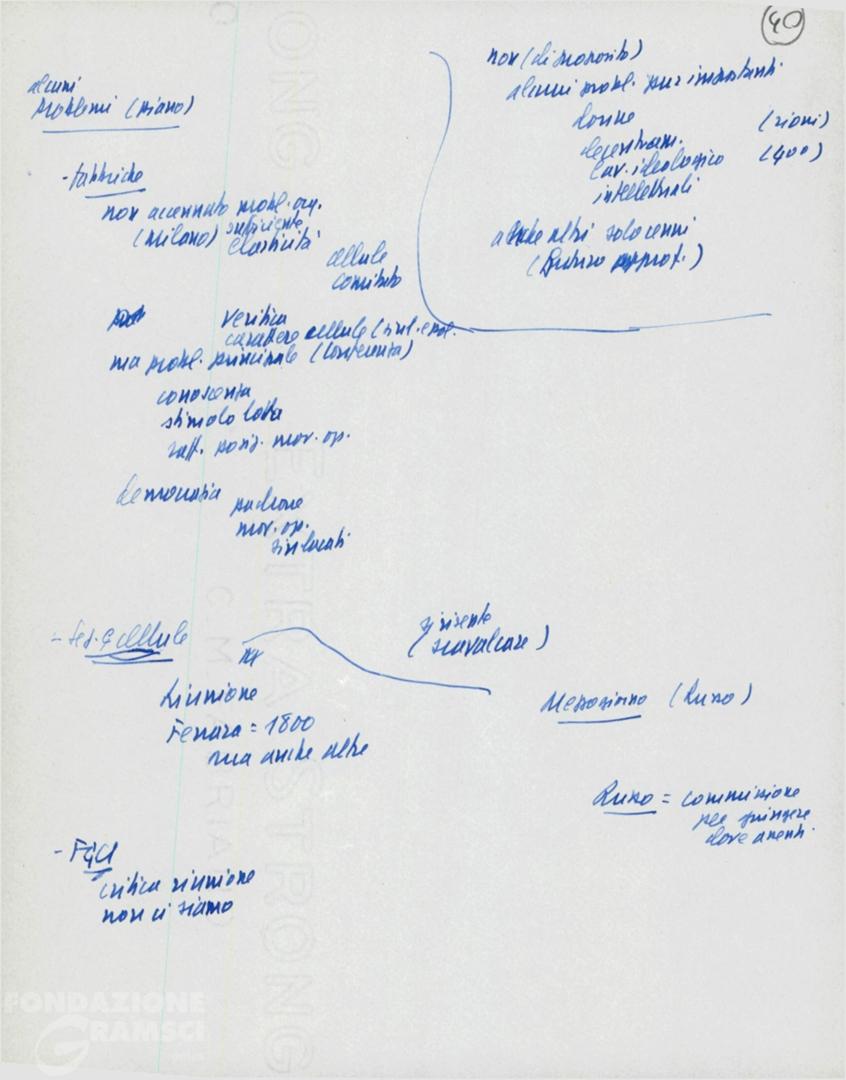 40
alcuni
problemi (piano)
- fabbriche
non accennato probl. org.
(Milano) sufficiente
elasticità
cellule
comitato
verifica
carattere cellule (sind. e pol.
ma probl. principale (Conferenza)
conoscenza
stimolo lotta
raff. posiz. mov. op.
democrazia padrone
mov. op.
sindacati
non (di proposito)
alcuni probl. pur importanti
donne (zioni)
decentram. (400)
lav. ideologico
intellettuali
anche altri solo cenni
(Russo approf.)
- Sez. e cellule
Riunione
Ferrara = 1800
ma anche altre
si risente
(scavalcare)
Mezzogiorno (Russo)
Russo = commissione
per spingere
dove assenti
- FGCI
critica riunione
non ci siamo
FONDAZIONE
GRAMSCI
ONG
EXTRA STRONG
C.M.
FABRIANO